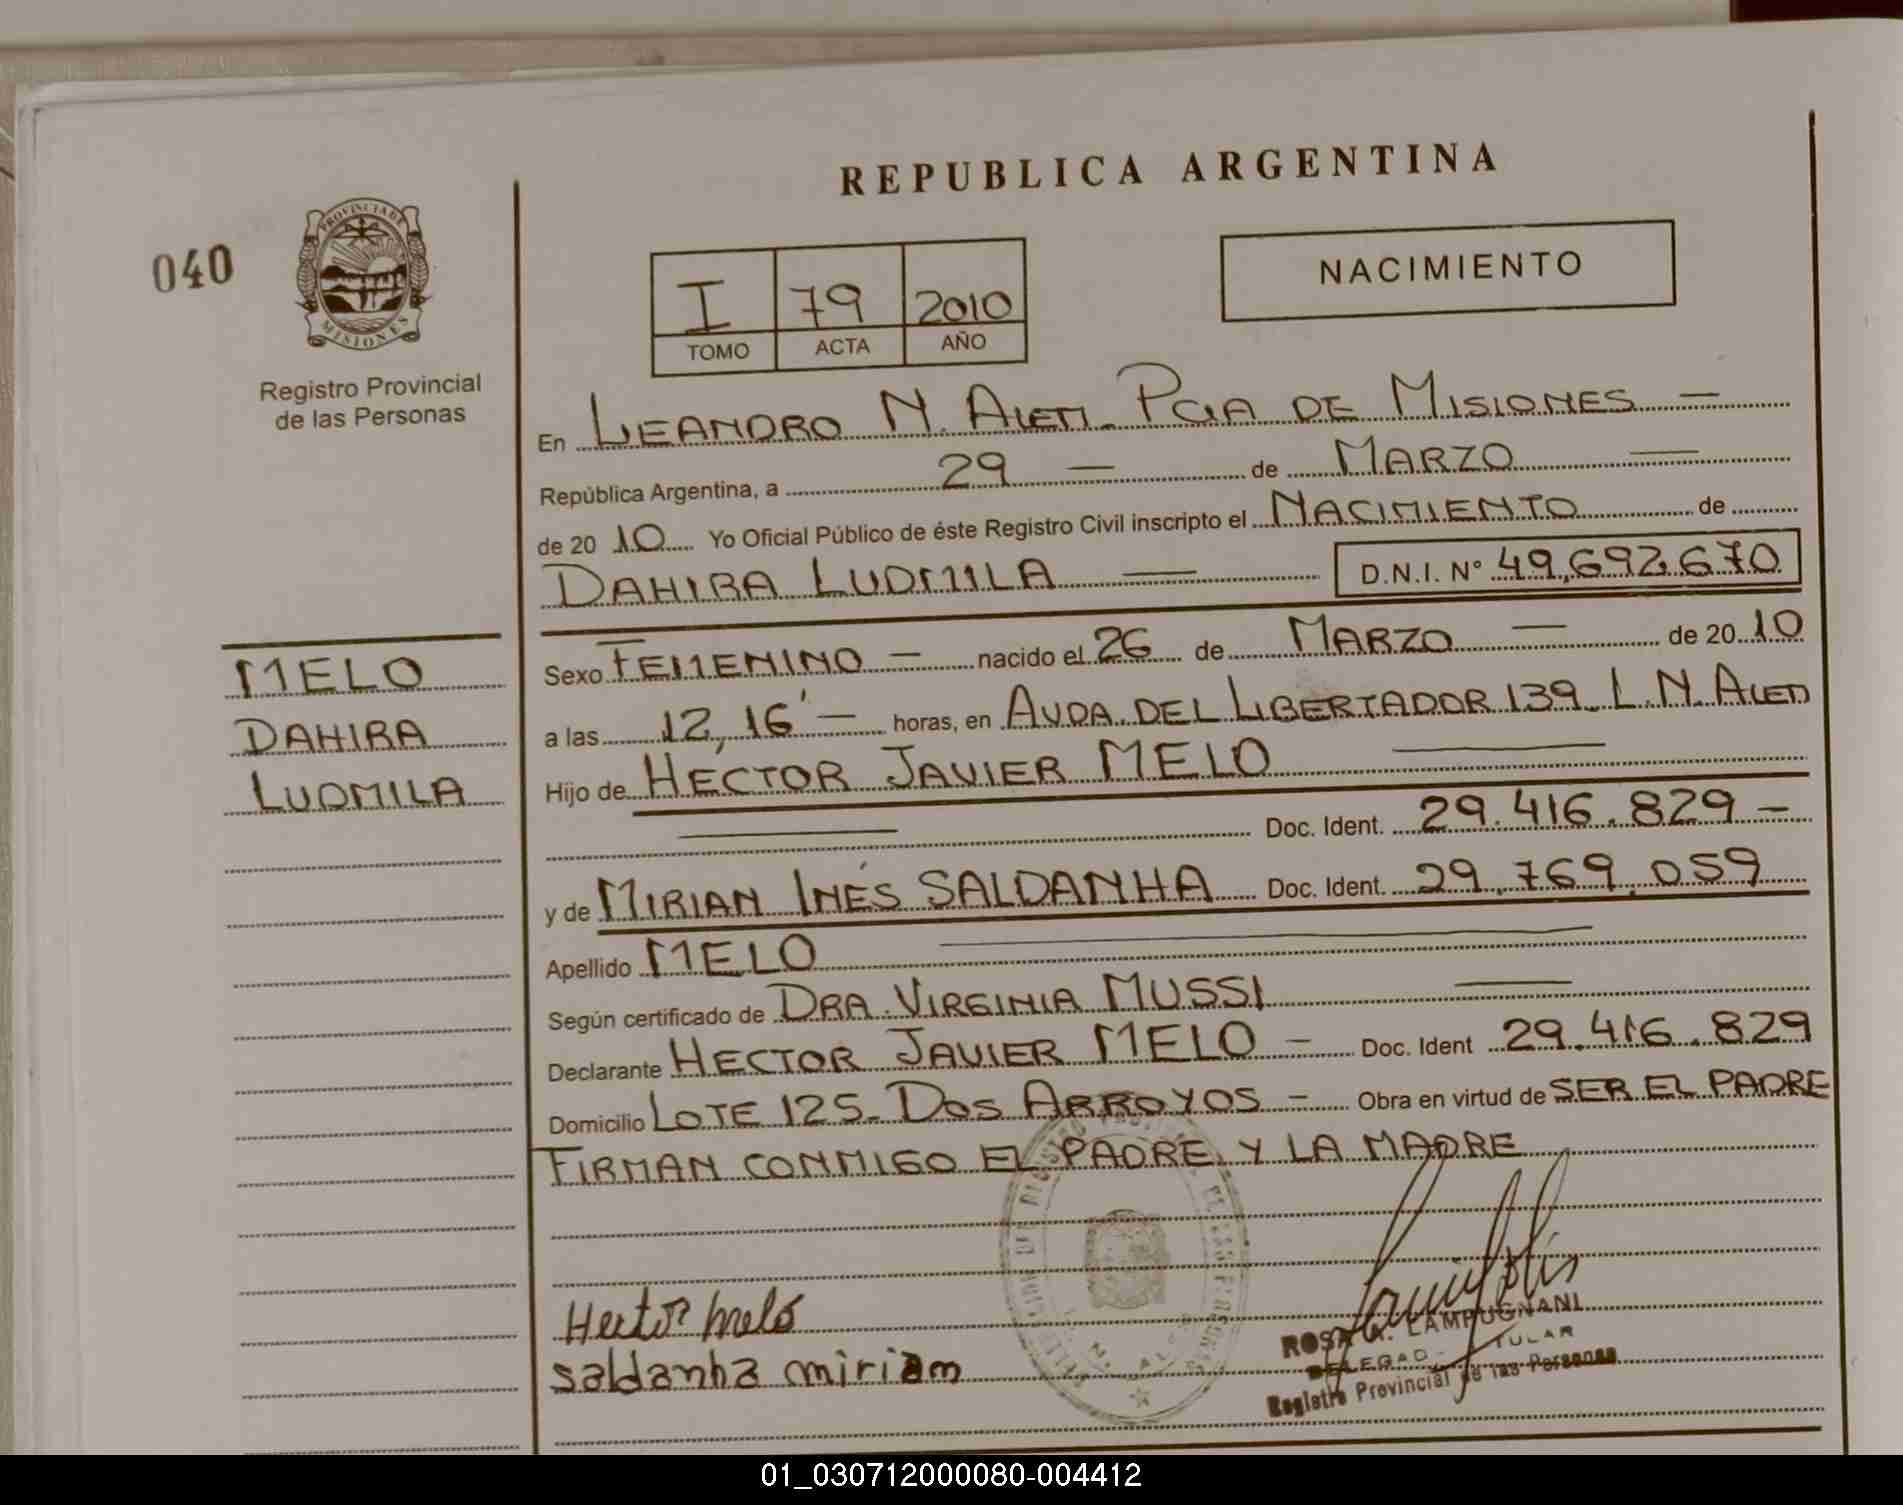 REPUBLICA ARGENTINA
040
PROVINCIA DE
MISIONES
Registro Provincial
de las Personas
NACIMIENTO
I 79 2010
TOMO ACTA AÑO
En LEANDRO N. ALEM. PCIA DE MISIONES —
República Argentina, a 29 — de MARZO —
de 20 10 Yo Oficial Público de éste Registro Civil inscripto el NACIMIENTO de
DAHIRA LUDMILA — D.N.I. N° 49,692,670
MELO
DAHIRA
LUDMILA
Sexo FEMENINO — nacido el 26 de MARZO — de 20 10
a las 12,16' — horas, en AVDA. DEL LIBERTADOR 139. L. N. ALEM
Hijo de HÉCTOR JAVIER MELO —
— Doc. Ident. 29.416.829 —
y de MIRIAN INÉS SALDANHA Doc. Ident. 29.769.059
Apellido MELO —
Según certificado de DRA. VIRGINIA MUSSI —
Declarante HECTOR JAVIER MELO — Doc. Ident 29.416.829
Domicilio LOTE 125- DOS ARROYOS — Obra en virtud de SER EL PADRE
FIRMAN CONMIGO EL PADRE Y LA MADRE
Hector melo
saldanha miriam
ROSA LAMPUGNANI
TULAR
Registro Provincial de las Personas
01_030712000080-004412